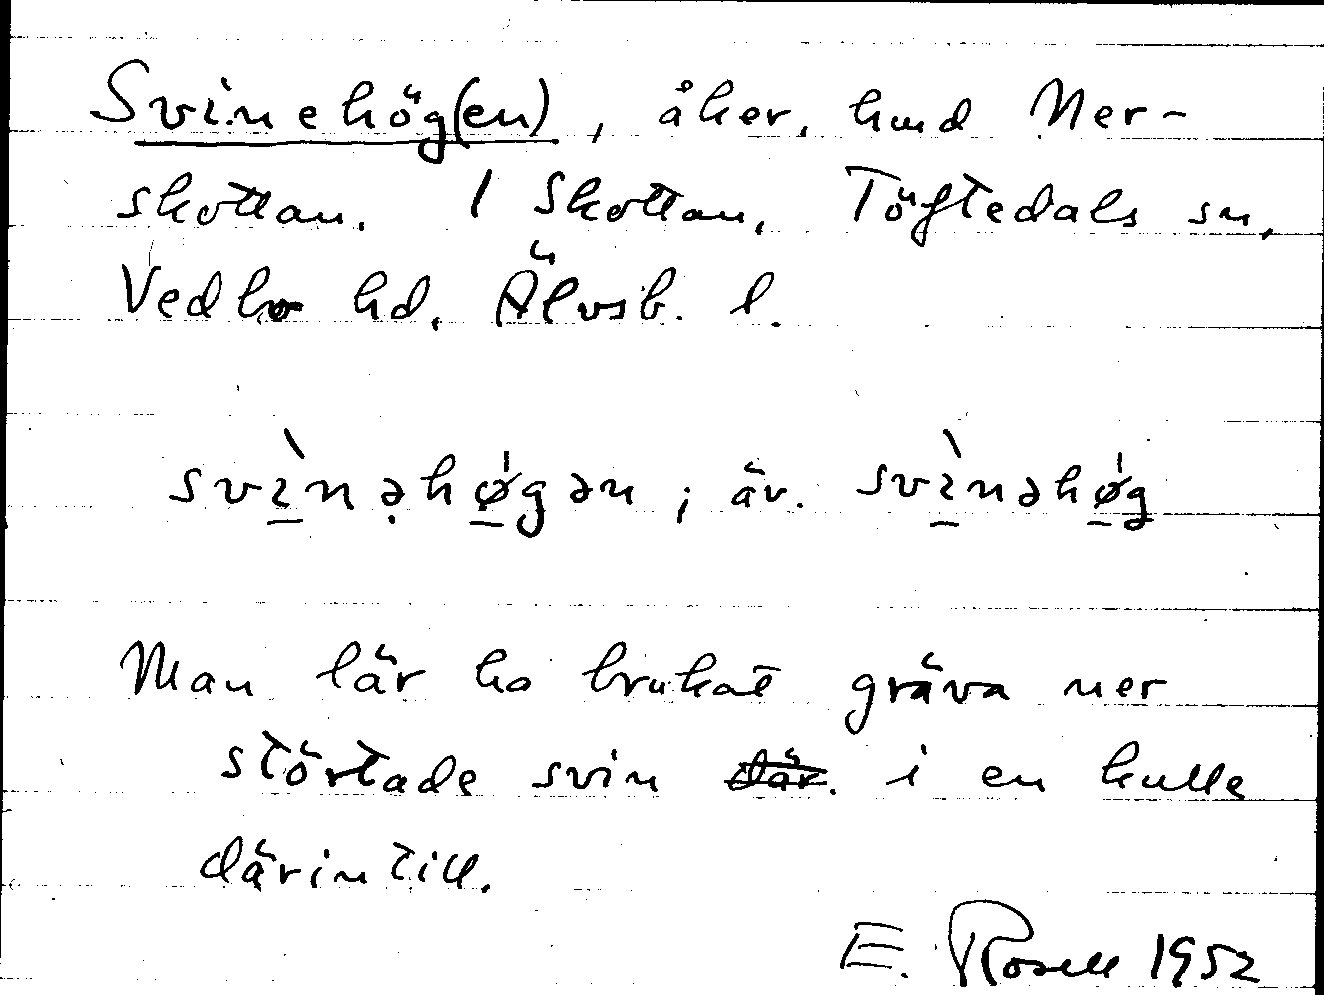 Svinehög(en), åker, hmd Ner-
skottan. 1 Skottan, Töftedals sn,
Vedbo hd, Älvsb. l.
svìnəhǿgən; äv. svìnəhǿg
Man lär ha brukat gräva ner
störtade svin där i en kulle
därintill.
E. Rosell 1952